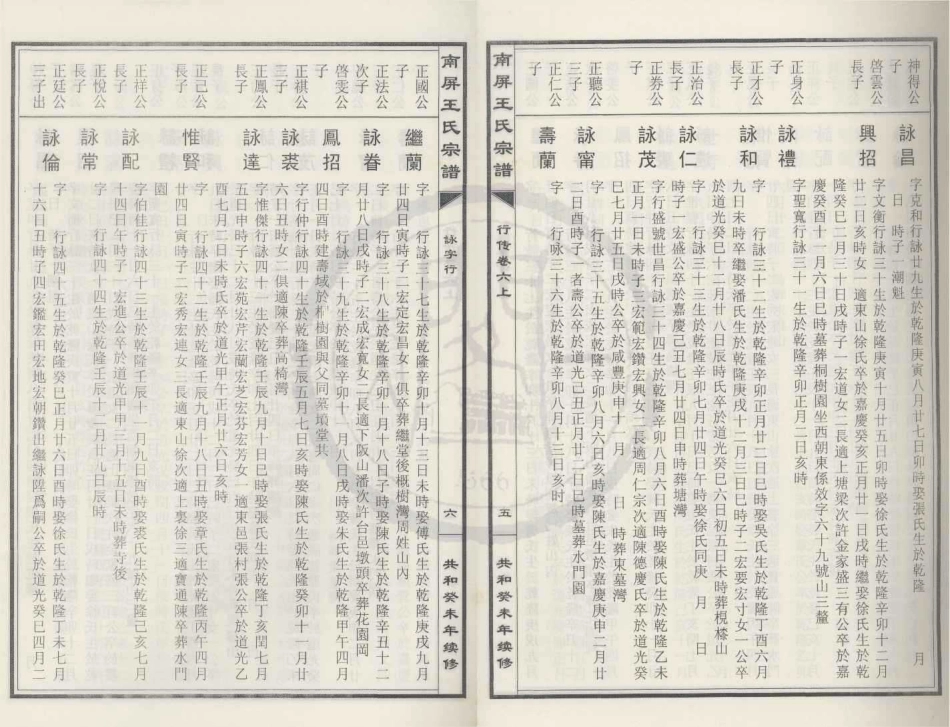 神得公
子
詠昌
字克和行詠廿九生於乾隆庚寅八月廿七日卯時娶張氏生於乾隆　月
日　時子一潮魁
啓雲公
長子
興招
字文衡行詠三十生於乾隆庚寅十月廿五日卯時娶徐氏生於乾隆辛卯十二月
廿二日亥時女一適東山徐氏卒於嘉慶癸亥正月廿一日戌時繼娶徐氏生於乾
隆癸巳二月三十日戌時子一宏道女二長適上塘梁次許金家盛三有公卒於嘉
慶癸酉十一月六日巳時墓葬桐樹園坐西朝東係效字六十九號山三釐
正身公
子
詠禮
字聖寬行詠三十一生於乾隆辛卯正月二日亥時
正才公
長子
詠和
字　行詠三十二生於乾隆辛卯正月廿二日巳時娶吳氏生於乾隆丁酉六月
九日未時卒繼娶潘氏生於乾隆庚戌十二月三日巳時子二宏要宏寸女一公卒
於道光癸巳十二月廿八日辰時氏卒於道光癸巳六日初五日未時葬梘樣山
正治公
長子
詠仁
字　行詠三十三生於乾隆辛卯七月廿四日午時娶徐氏同庚　月　日
時子一宏盛公卒於嘉慶己丑七月廿四日申時葬塘灣
正券公
子
詠茂
字行盛號世昌行詠三十四生於乾隆辛卯八月六日酉時娶陳氏生於乾隆乙未
正月一日未時子三宏範宏鑽宏興女二長適周仁宗次適陳德慶氏卒於道光癸
巳七月廿五日戌時公卒於咸豐庚申十一月　日　時葬東墓灣
正聽公
三子
詠甯
字　行詠三十五生於乾隆辛卯八月六日亥時娶陳氏生於嘉慶庚申二月廿
二日酉時子一者壽公卒於道光己丑正月廿二日巳時墓葬水門園
正仁公
子
壽蘭
字　行咏三十六生於乾隆辛卯八月十三日亥時
南屏王氏宗譜
行传卷六上
五
共和癸未年续修
南屏王氏宗譜
詠字行
六
共和癸未年续修
正國公
子
繼蘭
字　行詠三十七生於乾隆辛卯十月十三日未時娶傅氏生於乾隆庚戌九月
廿四日寅時子二宏定宏昌女一俱卒葬繼堂後概樹灣周姓山內
正法公
次子
詠眷
字　行詠三十八生於乾隆辛卯十月十八日子時娶陳氏生於乾隆辛丑十二
月廿八日戌時子二宏成宏寬女二長適下阪山潘次許台邑墩頭卒葬花園岡
啓雯公
子
鳳招
字　行詠三十九生於乾隆辛卯十一月八日戌時娶朱氏生於乾隆甲午四月
四日酉時建壽域於桐樹園與父同
正祺公
三子
詠裘
字行仲行詠四十生於乾隆壬辰五月七日亥時娶陳氏生於乾隆癸卯十一月廿
六日丑時女二俱適陳卒葬高椅灣
正鳳公
長子
詠達
字惟傑行詠四十一生於乾隆壬辰九月十日巳時娶張氏生於乾隆丁亥閏七月
五日申時子六宏苑宏芹宏蘭宏芝宏芬宏芳女一適東邑張村張公卒於道光乙
酉七月二日未時氏卒於道光甲午正月廿六日亥時
正己公
長子
惟賢
字　行詠四十二生於乾隆壬辰九月十八日丑時娶章氏生於乾隆丙午四月
廿四日寅時子二宏秀宏連女三長適東山徐次適上裏徐三適寶通陳卒葬水門
園
正祥公
長子
詠配
字伯佳行詠四十三生於乾隆壬辰十一月九日酉時娶裘氏生於乾隆己亥七月
十四日午時子一宏進公卒於道光甲申三月十五日未時葬寺後
正悅公
長子
詠常
字　行詠四十四生於乾隆壬辰十二月廿九日辰時
正廷公
三子出
詠倫
字　行詠四十五生於乾隆癸巳正月廿六日酉時娶徐氏生於乾隆丁未七月
十六日丑時子四宏鑑宏田宏地宏朝鑽出繼詠陞爲嗣公卒於道光癸巳四月二